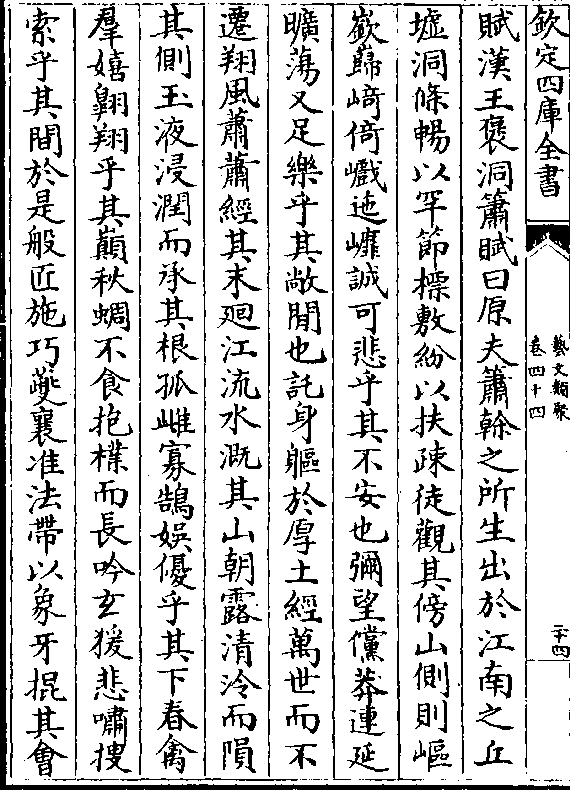 欽定四庫全書
藝文類聚
卷四十四
二十四
賦漢王襃洞簫賦曰原夫簫幹之所生出於江南之丘
墟洞條暢以罕節摽敷紛以扶疎徒觀其傍山側則嶇
嶔巋崎倚巇迤㠢誠可悲乎其不安也彌望儻莽連延
曠蕩又足樂乎其敞閒也託身軀於厚土經萬世而不
遷翔風蕭蕭經其末廻江流水溉其山朝露清泠而隕
其側玉液浸潤而承其根孤雌寡鵠娛優乎其下春禽
羣嬉翺翔乎其巔秋蜩不食抱樸而長吟玄猨悲嘯搜
索乎其間於是般匠施巧夔襄准法帶以象牙掍其會